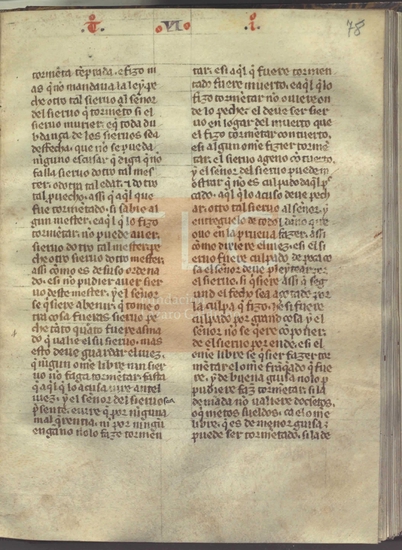 T VI I
78
tormẽta tẽprada. e fizo m
as q̃ no mandaua la ley. pe
che otro tal sieruo al señor
del sieruo q̃ tormẽto si el
sieruo muriere. e toda du
bdança de los sieruos sea
desfecha. que no se pueda
ninguno escusar q̃ diga q̃ no
falla sieruo dotro tal mes
ter. o dotra tal edat. o dotro
tal puecho. assi q̃ aq̃l que
fue tormẽtado. si sabie al
gun mester. e aq̃l q̃ lo fizo
tormẽtar. no puede auer
sieruo dotro tal mester. pe
che otro sieruo dotro mester
assi como es de suso orde na
do. e si no pudier auer sier
uo deste mester. y el señor
se q̃siere abenir. q̃ tome o
tra cosa fueras sieruo pe
che tãto quãto fuere asma
do q̃ ualie el su sieruo. mas
esto deue guardar el iuez.
q̃ ningun ome libre nin sier
uo no faga tormẽtar. fasta
q̃ aq̃l q̃ lo acusa iure antel
iuez. y el señor del sieruo sea
psente. q̃ por ninguna
mal q̃rencia. ni por ningũ
engano no lo fazo tormẽn
tar. e si aq̃l q̃ fuere tormen
tado fuere muerto. e aq̃l q̃ lo
fizo tormẽtar no ouiere on
de lo peche. el deue ser sier
uo en logar del muerto que
el fizo tormẽtar con tuerto.
e si algun ome fizier tormẽ
tar. el sieruo ageno cõ tuerto.
y el señor del sieruo puede m
ostrar q̃ no es culpado daq̃l pe
cado. aq̃l q̃ lo acusó deue pech
ar. otro tal sieruo al señor. y
entreguelo de todo
quo en la prueua fazer. assi
cõmo dixiere el iuez. e si el si
eruo fuere culpado de poca co
sa el señor deue pleytear por
el sieruo. si q̃siere assi q̃ seg
und el fecho sea açotado por
la culpa q̃ fizo. e si fuere
culpado por grand cosa y el
señor no se q̃ere cõponer.
de el sieruo por ende. e si el
ome libre se q̃sier fazer tor
mẽtar el ome frãqado q̃ fue
re. y de buena guisa no lo p
pudiere faz tormẽtar. si la
demãda no ualiere dozietos.
o q̃ņietos sueldos. ca el ome
libre. q̃ es de menor guisa
puede ser tormẽtado. si la de